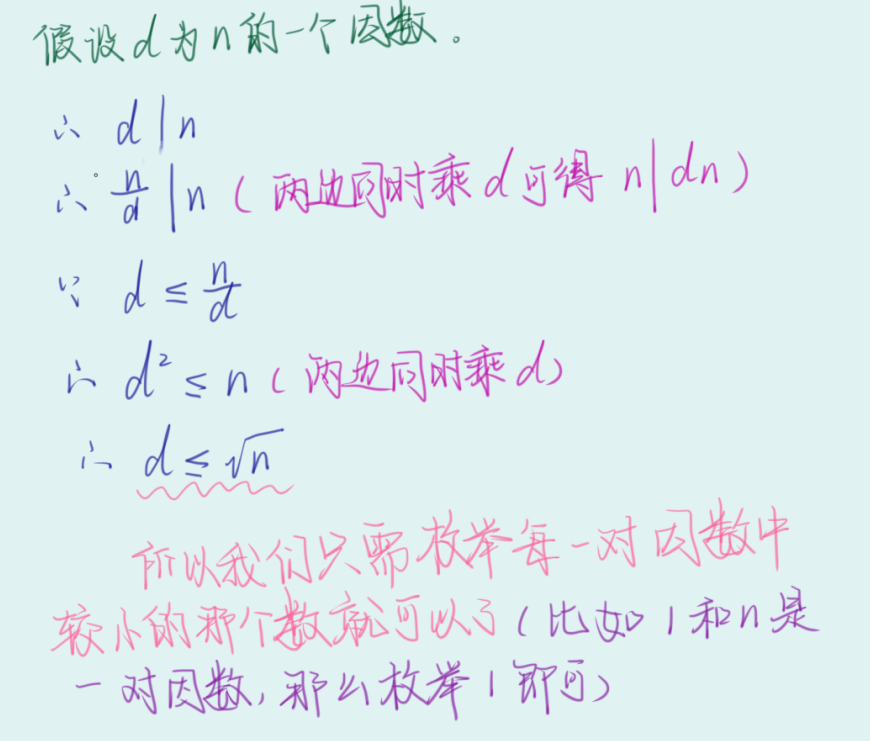 假设d为n的一个因数。
∴ d|n
∴ n/d |n (两边同时乘d可得 n|dn)
∵ d ≤ n/d
∴ d² ≤ n (两边同时乘d)
∴ d ≤ √n
所以我们只需枚举每一对因数中
较小的那个数就可以了(比如1和n是
一对因数,那么枚举1即可)